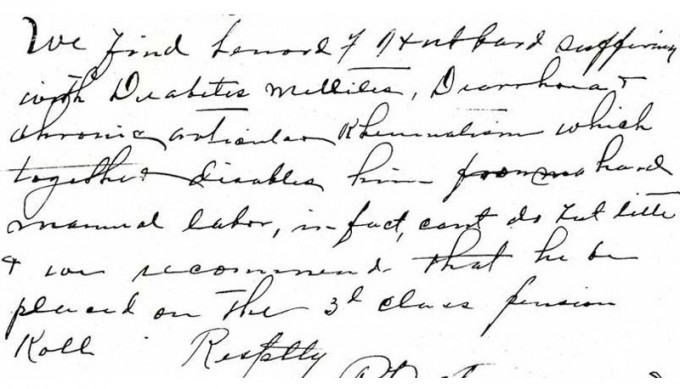 We find Lenord F Hubbard suffering
with Diabetes Mellites, Diarrhoea &
chronic articular Rheumatism which
together disables him from hard
manual labor, in fact, cant do but little
& we recommend that he be
placed on the 3d class pension
Roll Respttly